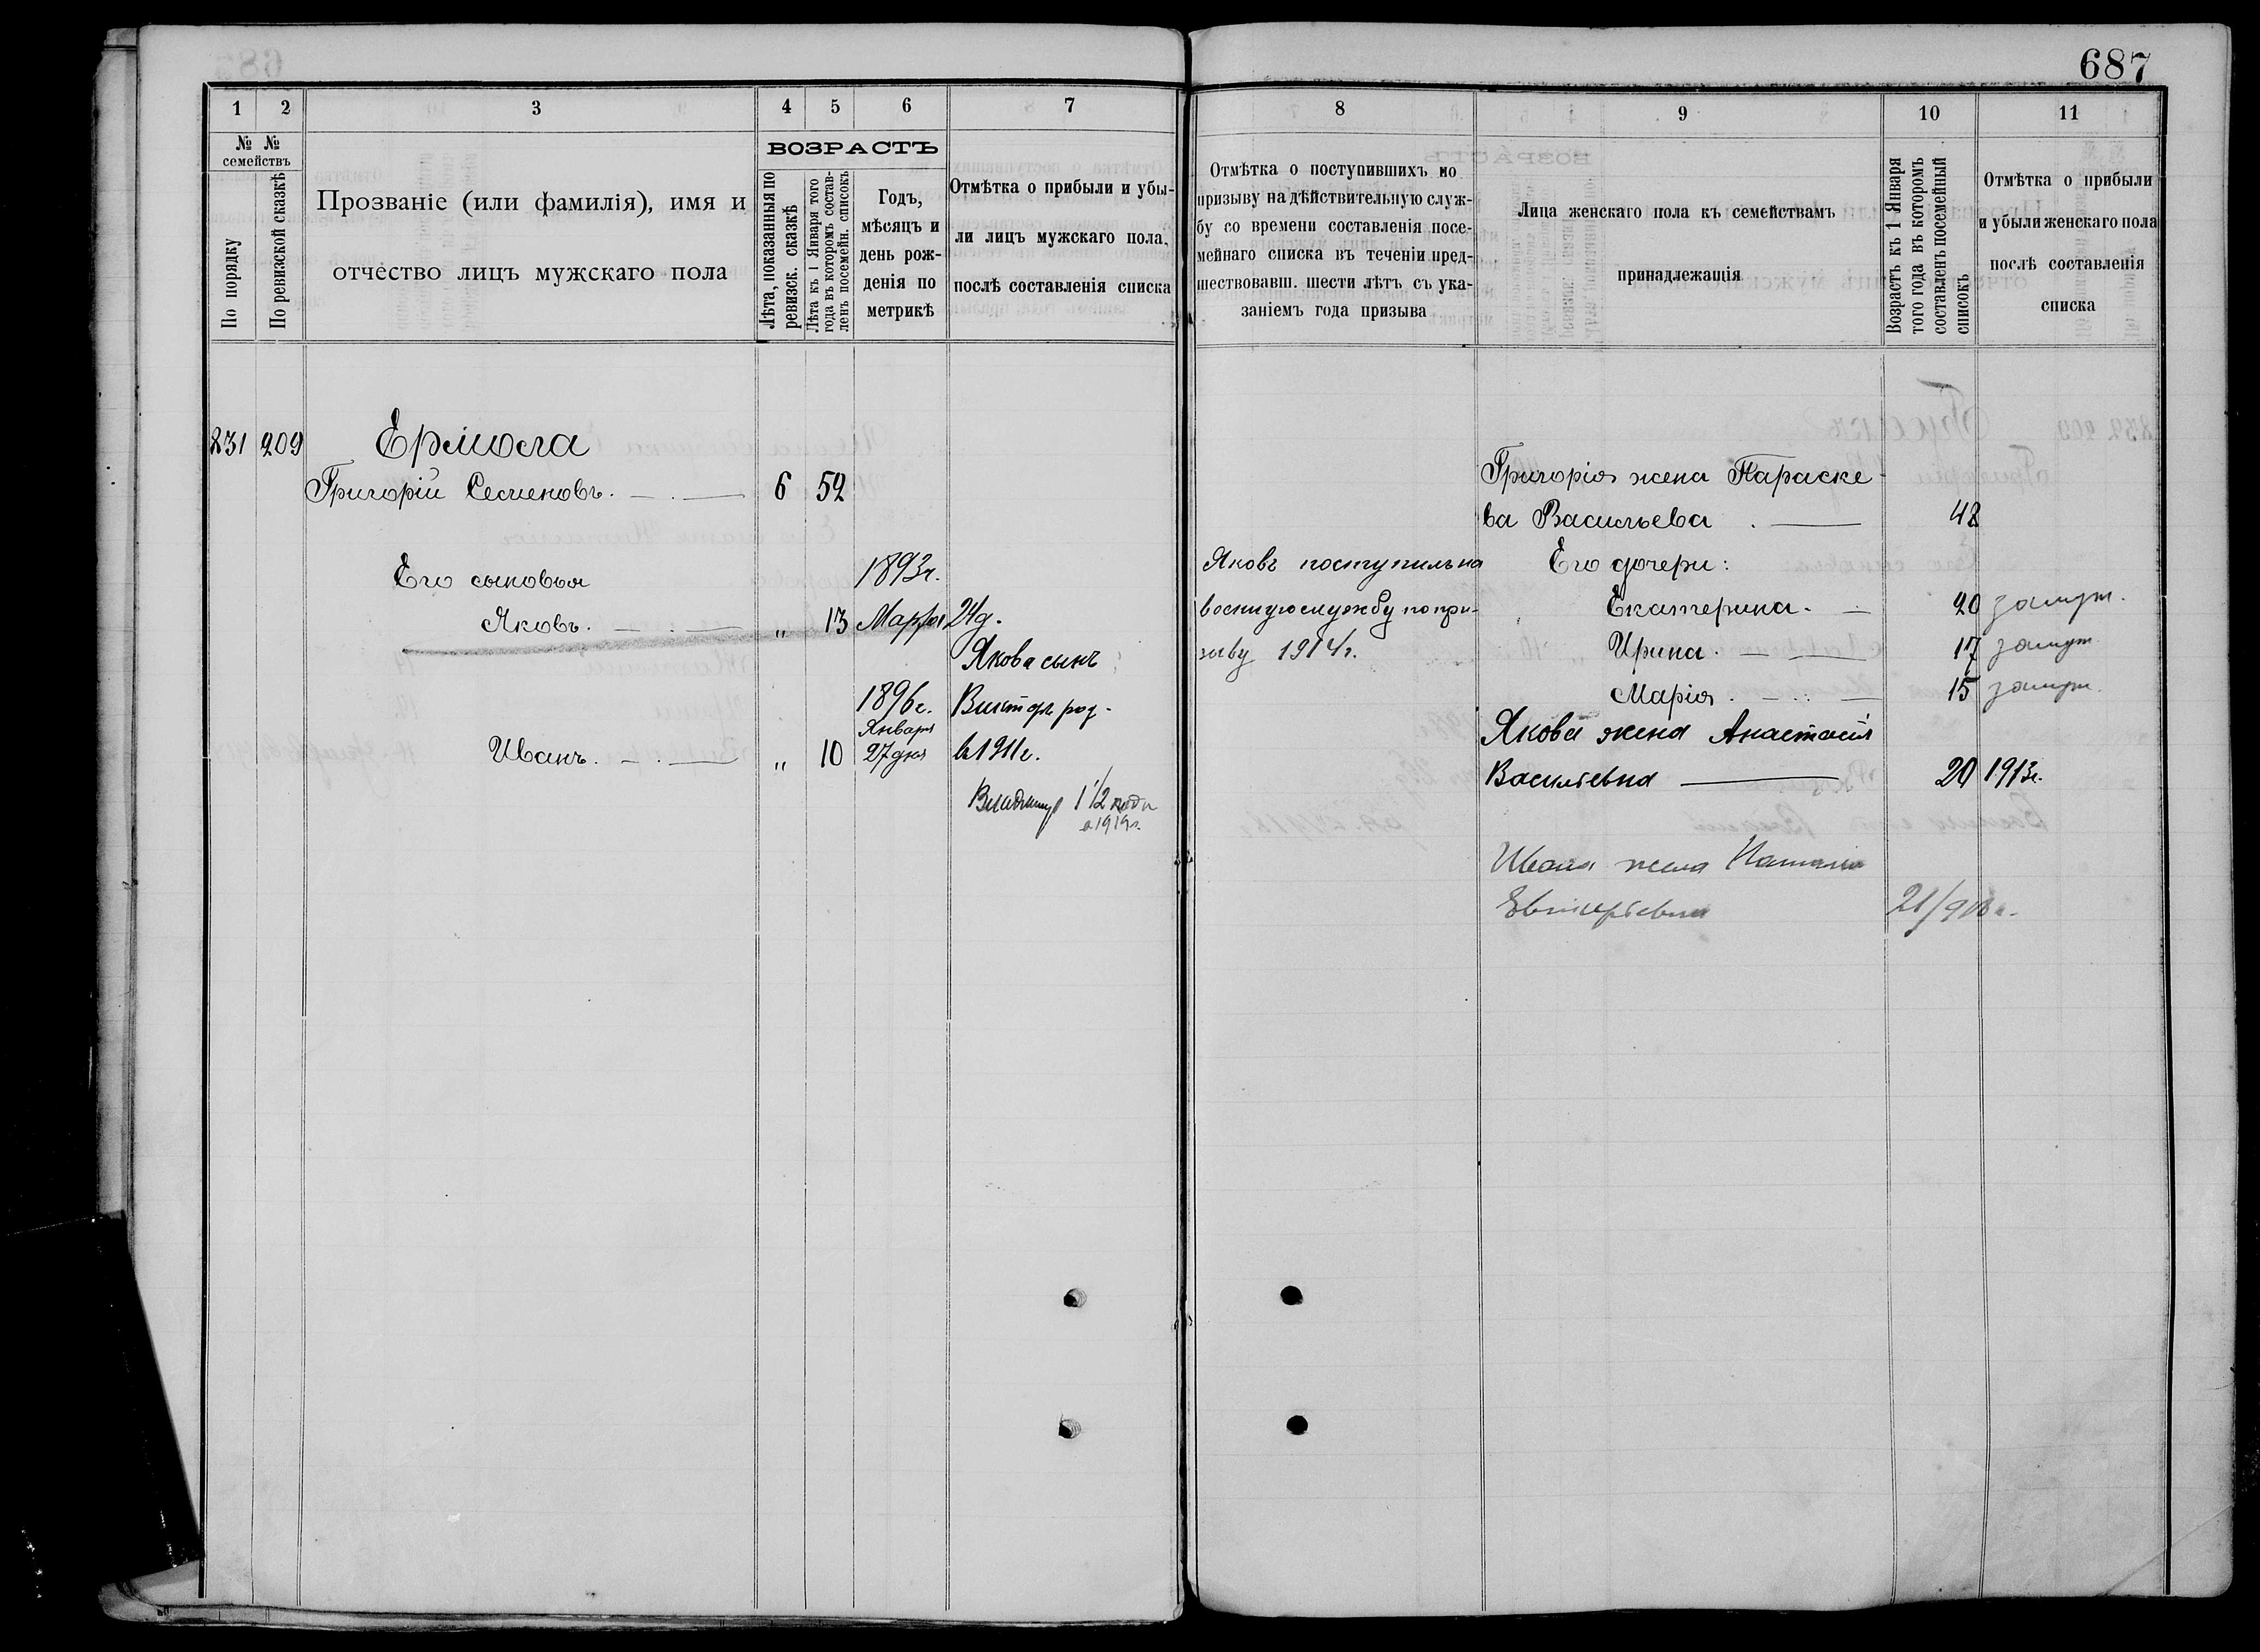 687
1 2 3 4 5 6 7
№ №
семействъ
По порядку
По ревизской сказкѣ
Прозваніе (или фамилія), имя и
отчество лицъ мужскаго пола
ВОЗРАСТЪ
Лѣта, показанныя по
ревизск. сказкѣ
Лѣта къ 1 Января того
года въ которомъ состав-
ленъ посемейн. списокъ
Годъ,
мѣсяцъ и
день рож-
денія по
метрикѣ
Отмѣтка о прибыли и убы-
ли лицъ мужскаго пола,
послѣ составленія списка
231 209 Ермола
Григорій Семеновъ. 6 52
Его сыновья 1893г.
Яковъ. „ 13 Марта 24д.
Якова сынъ
1896г. Викторъ род.
Января
Иванъ. „ 10 27 дня в 1911г.
Владимир 1 1/2 года
в 1919г.
8 9 10 11
Отмѣтка о поступившихъ по
призыву на дѣйствительную служ-
бу со времени составленія посе-
мейнаго списка въ теченіи пред-
шествовавш. шести лѣтъ съ ука-
заніемъ года призыва
Лица женскаго пола къ семействамъ
принадлежащія
Возрастъ къ 1 Января
того года въ которомъ
составленъ посемейный
списокъ
Отмѣтка о прибыли
и убыли женскаго пола
послѣ составленія
списка
Григорія жена Параске-
ва Васильева 48
Яковъ поступилъ на Его дочери:
военную службу по при- Екатерина. 20 замуж.
зыву 1914г. Ирина. 17 замуж
Марія. 15 замуж.
Якова жена Анастасія
Васильевна 20 1913г.
Ивана жена Наталія
21/918г.